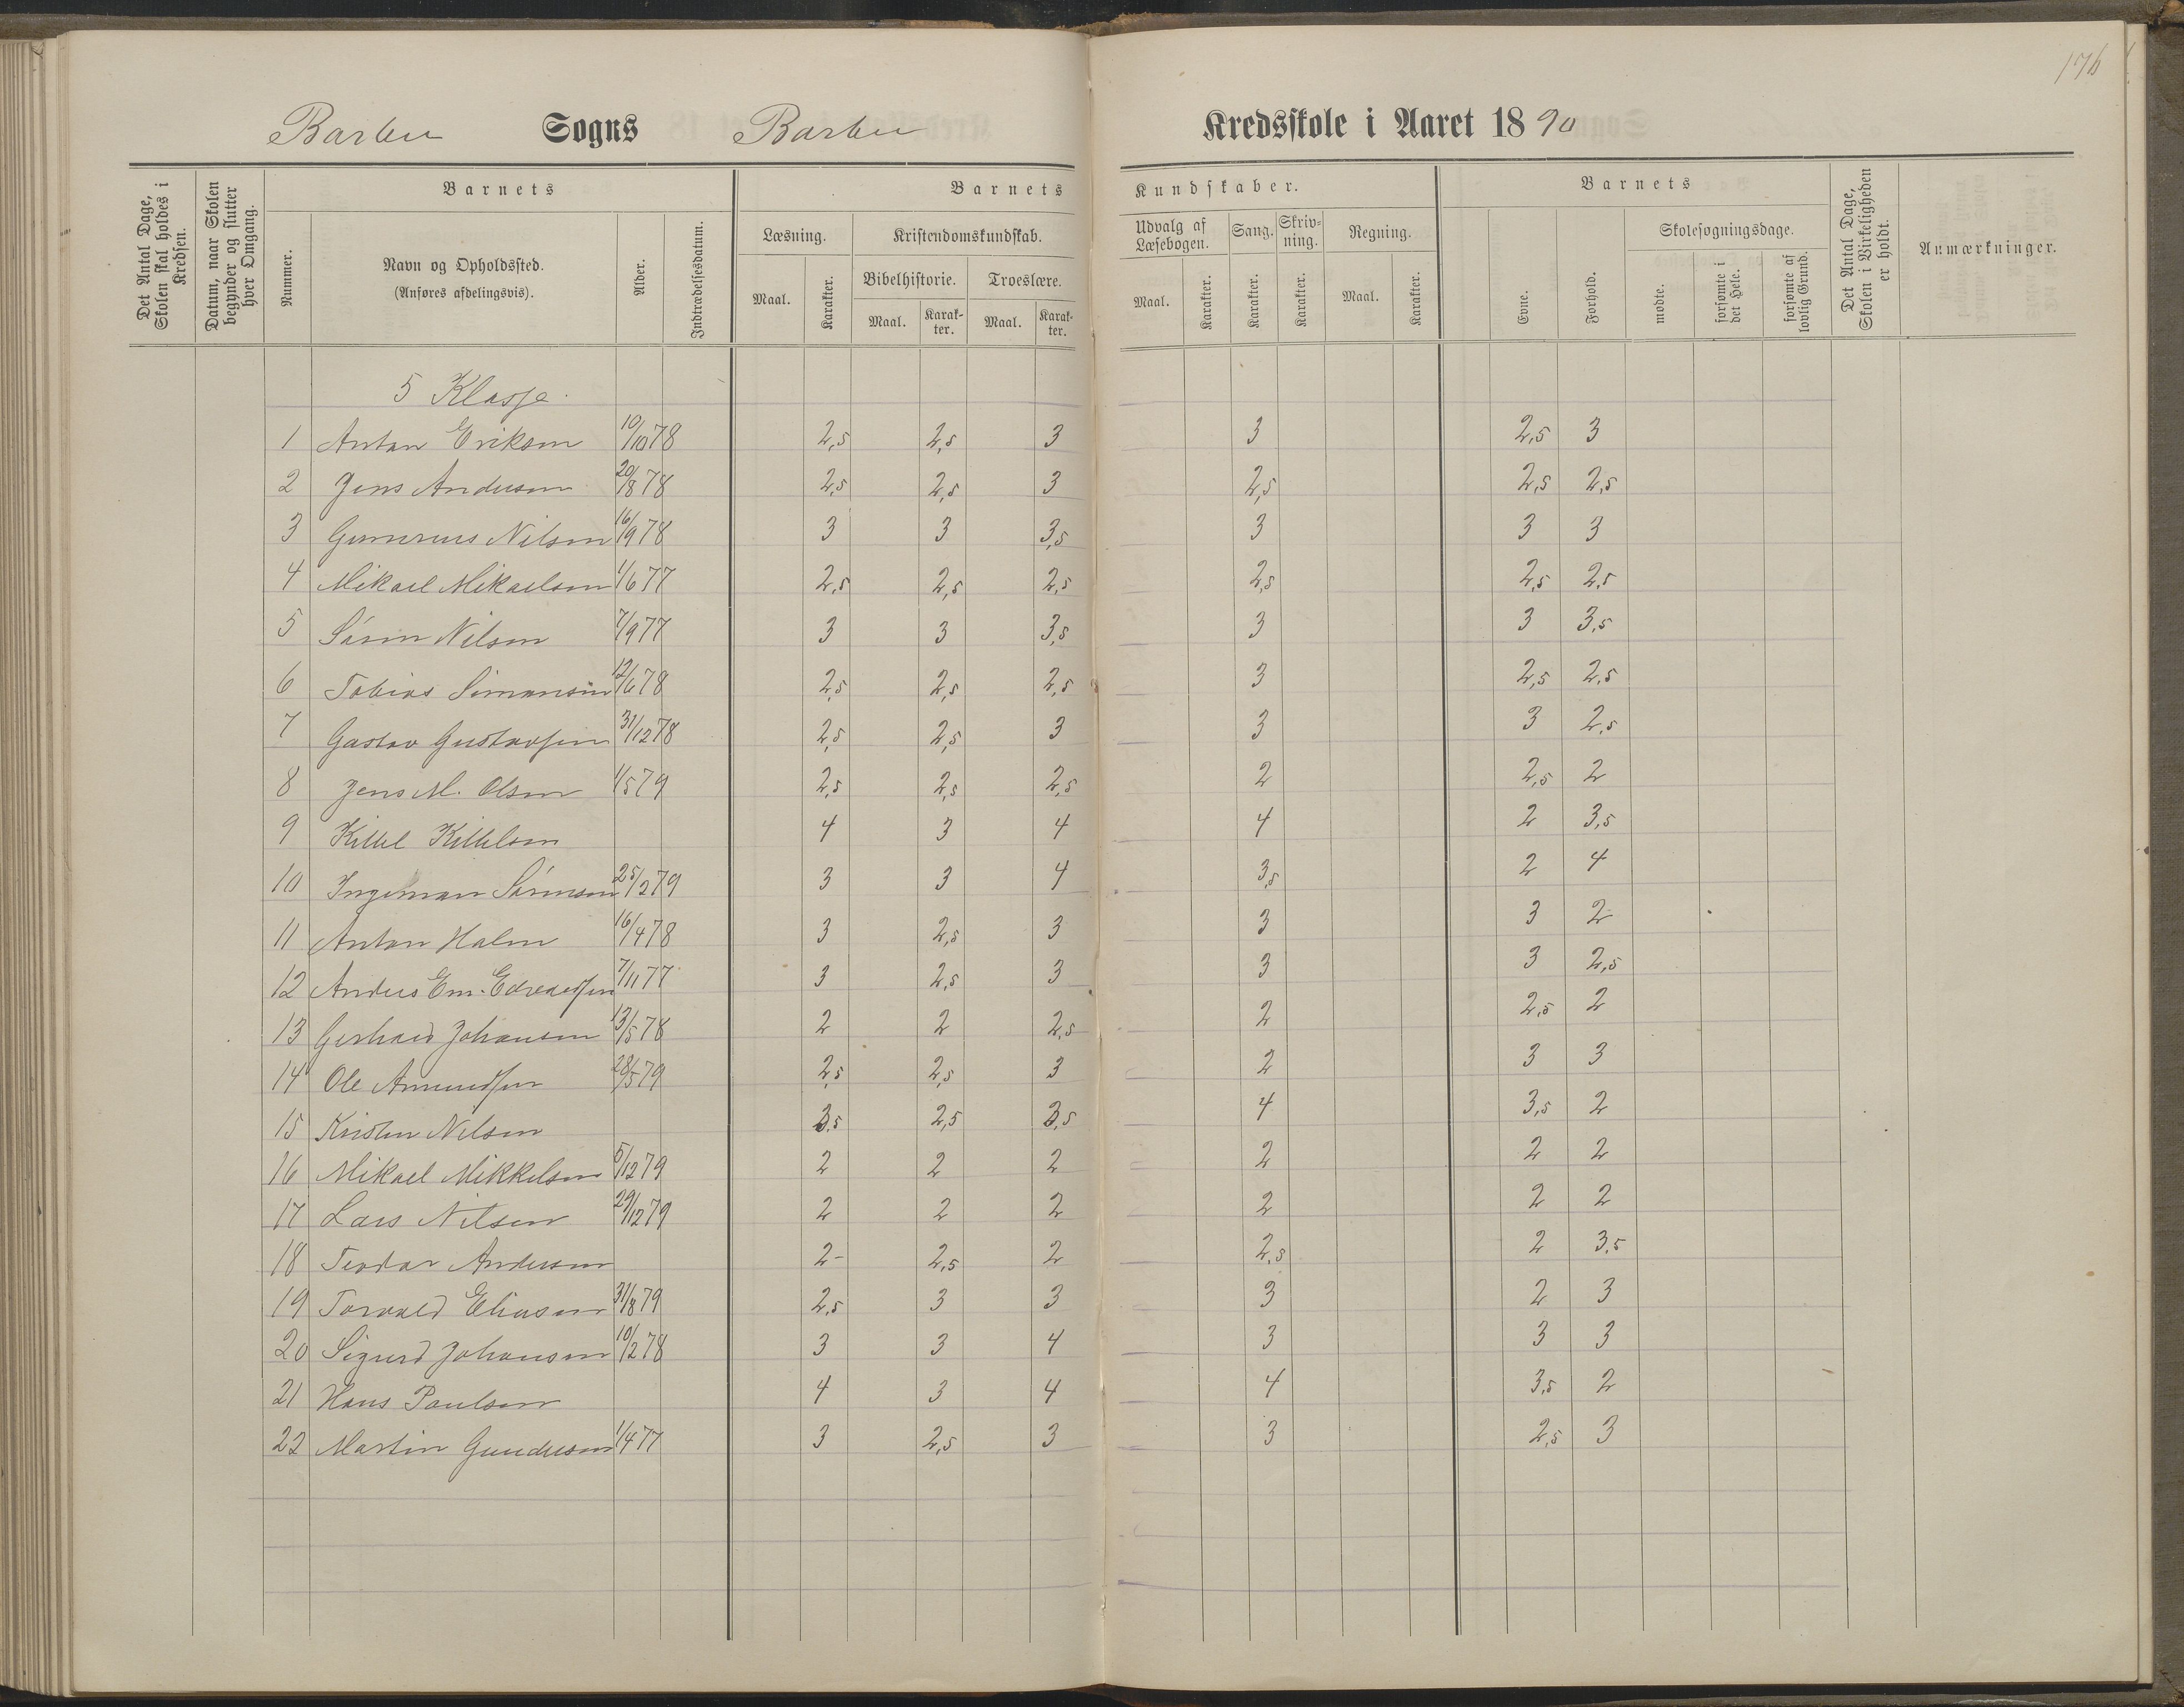 176
Barbu Sogns Barbu Kredsskole i Aaret 1890
Det Antal Dage, Skolen skal holdes i Kredsen.
Datum, naar Skolen begynder og slutter hver Omgang.
Barnets
Nummer.
Navn og Opholdssted.
(Anføres afdelingsvis).
Alder.
Indtrædelsesdatum.
Barnets Kundskaber.
Læsning.
Maal.
Karakter.
Kristendomskundskab.
Bibelhistorie.
Maal.
Karakter.
Troeslære.
Maal.
Karakter.
Udvalg af Læsebogen.
Maal.
Karakter.
Sang.
Karakter.
Skrivning.
Karakter.
Regning.
Maal.
Karakter.
Barnets
Evne.
Forhold.
Skolesøgningsdage.
mødte.
forsømte i det Hele.
forsømte af lovlig Grund.
Det Antal Dage, Skolen i Virkeligheden er holdt.
Anmærkninger.
5 Klasse.
1 Anton Eriksen 10/10 78 2,5 2,5 3 3 2,5 3
2 Jens Andersen 20/8 78 2,5 2,5 3 2,5 2,5 2,5
3 Gunerius Nilsen 16/9 78 3 3 3,5 3 3 3
4 Mikael Mikaelsen 1/6 77 2,5 2,5 2,5 2,5 2,5 2,5
5 Sörin Nilsen 7/9 77 3 3 3,5 3 3 3,5
6 Tobias Simonsen 12/6 78 2,5 2,5 2,5 3 2,5 2,5
7 Gustav Gustavsen 31/12 78 2,5 2,5 3 3 3 2,5
8 Jens M. Olsen 1/5 79 2,5 2,5 2,5 2 2,5 2
9 Kittel Kittelsen 4 3 4 4 2 3,5
10 Ingeman Sörensen 25/2 79 3 3 4 3,5 2 4
11 Anton Holm 16/4 78 3 2,5 3 3 3 2
12 Anders Em. Edvardsen 7/11 77 3 2,5 3 3 3 2,5
13 Gerhard Johansen 13/5 78 2 2 2,5 2 2,5 2
14 Ole Amundsen 28/5 79 2,5 2,5 3 2 3 3
15 Kristen Nilsen 3,5 2,5 3,5 4 3,5 2
16 Mikael Mikkelsen 5/12 79 2 2 2 2 2 2
17 Lars Nilsen 29/12 79 2 2 2 2 2 2
18 Teodor Andersen 2- 2,5 2 2,5 2 3,5
19 Torvald Eliasen 31/8 79 2,5 3 3 3 2 3
20 Sigurd Johansen 10/2 78 3 3 4 3 3 3
21 Hans Paulsen 4 3 4 4 3,5 2
22 Martin Gundersen 1/4 77 3 2,5 3 3 2,5 3